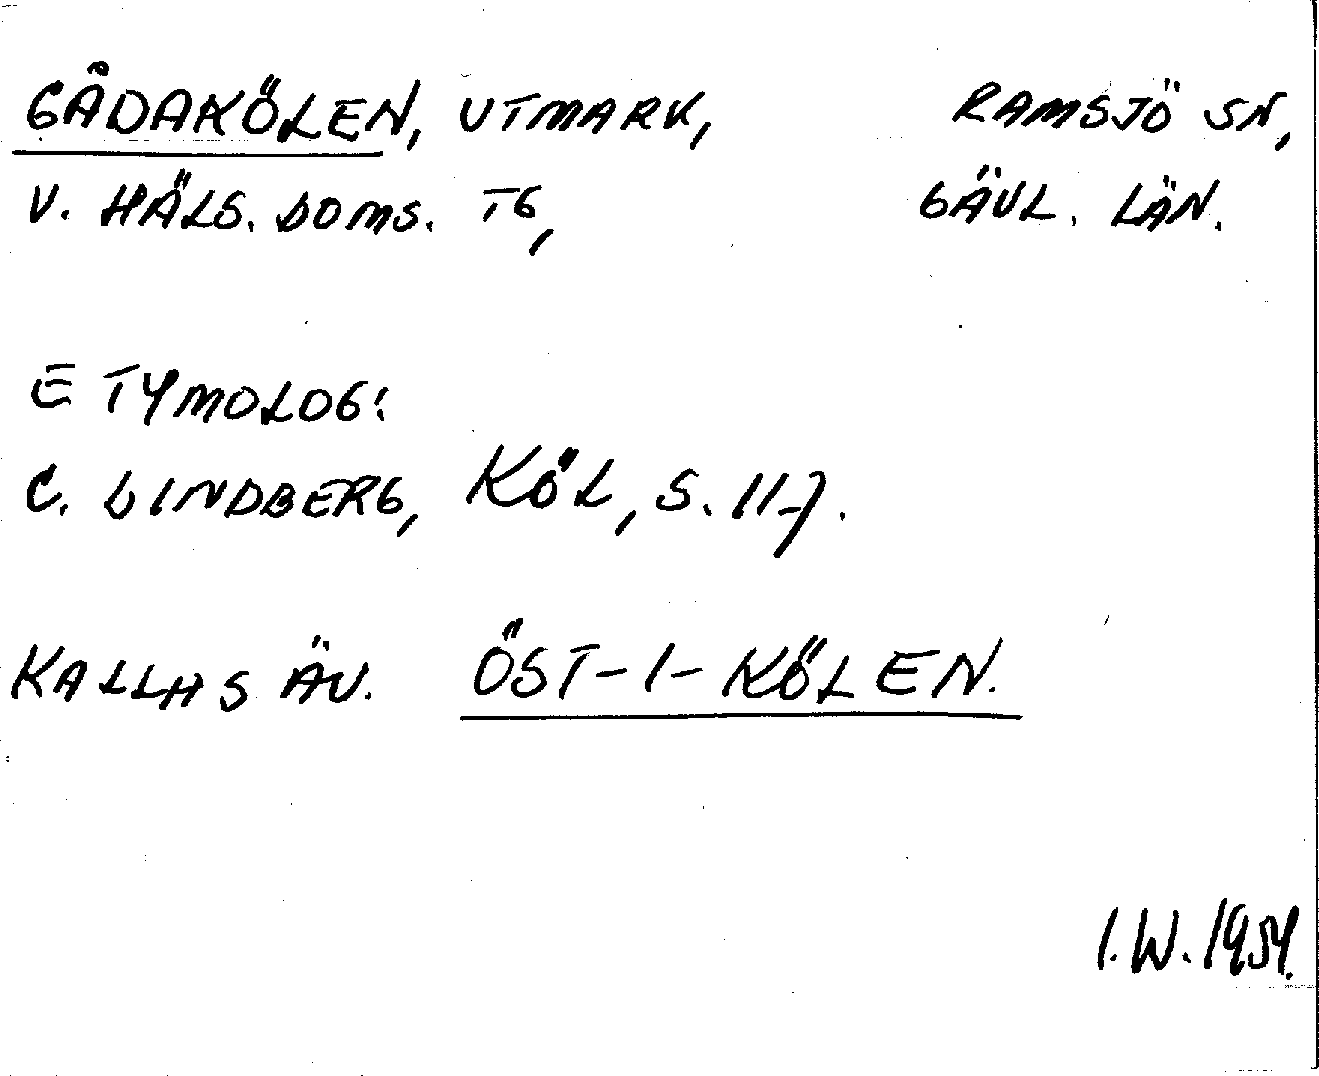 GÅDAKÖLEN, UTMARK, RAMSJÖ SN,
V. HÄLS. DOMS. TG, GÄVL. LÄN.
ETYMOLOG:
C. LINDBERG, KÖL, S. 117.
KALLAS ÄV. ÖST-I-KÖLEN.
I.W. 1954.